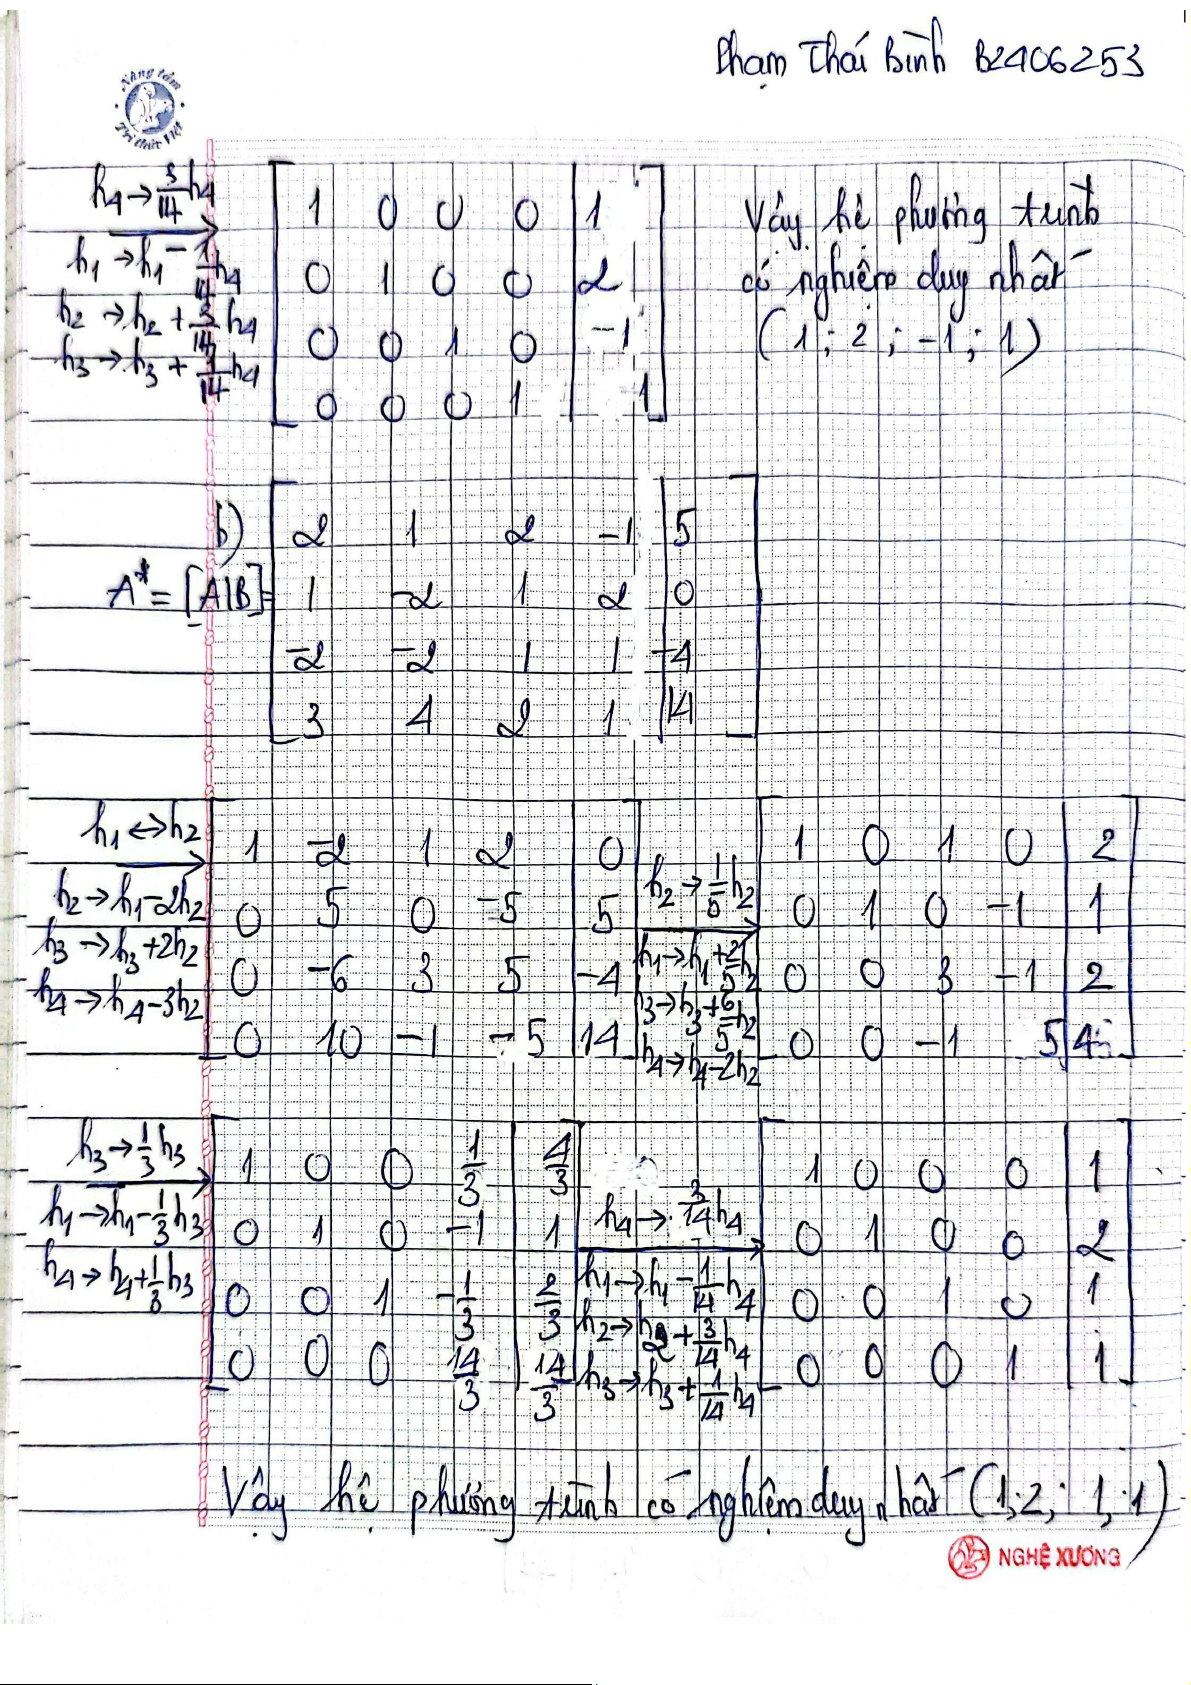 Phạm Thái Bình B2406253
Nâng tầm
Tri thức Việt
h4 → 3/14 h4
h1 → h1 - 1/14 h4
h2 → h2 + 3/14 h4
h3 → h3 + 1/14 h4
1 0 0 0 | 1
0 1 0 0 | 2
0 0 1 0 | -1
0 0 0 1 | 1
Vậy hệ phương trình
có nghiệm duy nhất
(1; 2; -1; 1)
b)
A* = [A|B] =
2 1 2 -1 | 5
1 -2 1 2 | 0
-2 -2 1 1 | -4
3 4 2 1 | 14
h1 ↔ h2
h2 → h1 - 2h2
h3 → h3 + 2h2
h4 → h4 - 3h2
1 -2 1 2 | 0
0 5 0 -5 | 5
0 -6 3 5 | -4
0 10 -1 -5 | 14
h2 → 1/5 h2
h1 → h1 + 2/5 h2
h3 → h3 + 6/5 h2
h4 → h4 - 2h2
1 0 1 0 | 2
0 1 0 -1 | 1
0 0 3 -1 | 2
0 0 -1 5 | 4
h3 → 1/3 h3
h1 → h1 - 1/3 h3
h4 → h4 + 1/3 h3
1 0 0 1/3 | 4/3
0 1 0 -1 | 1
0 0 1 -1/3 | 2/3
0 0 0 14/3 | 14/3
h4 → 3/14 h4
h1 → h1 - 1/14 h4
h2 → h2 + 3/14 h4
h3 → h3 + 1/14 h4
1 0 0 0 | 1
0 1 0 0 | 2
0 0 1 0 | 1
0 0 0 1 | 1
Vậy hệ phương trình có nghiệm duy nhất (1; 2; 1; 1)
NGHỆ XƯƠNG